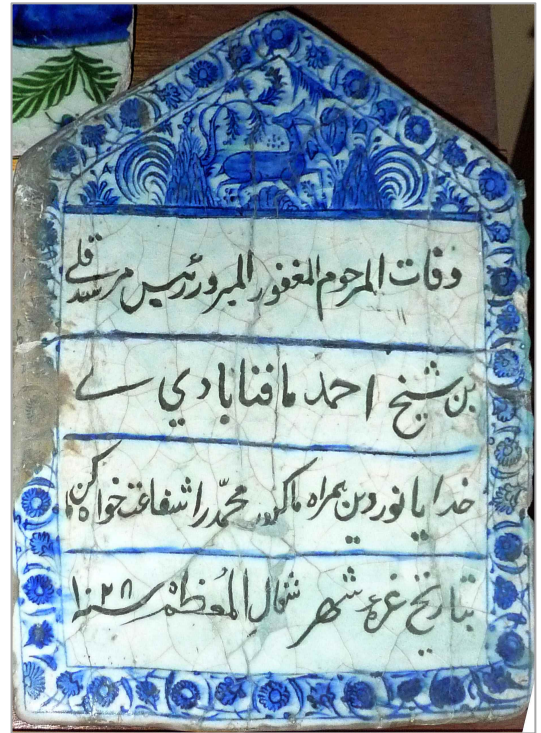 وفات المرحوم المغفور المبرور رئیس مرشد قلی
بن شیخ احمد مافنابادي
خدایا نور دین همراه ما کن محمّد را شفاعت خواه کن
بتاریخ غرهٔ شهر شوال المُعظم سنه ۱۰۲۸